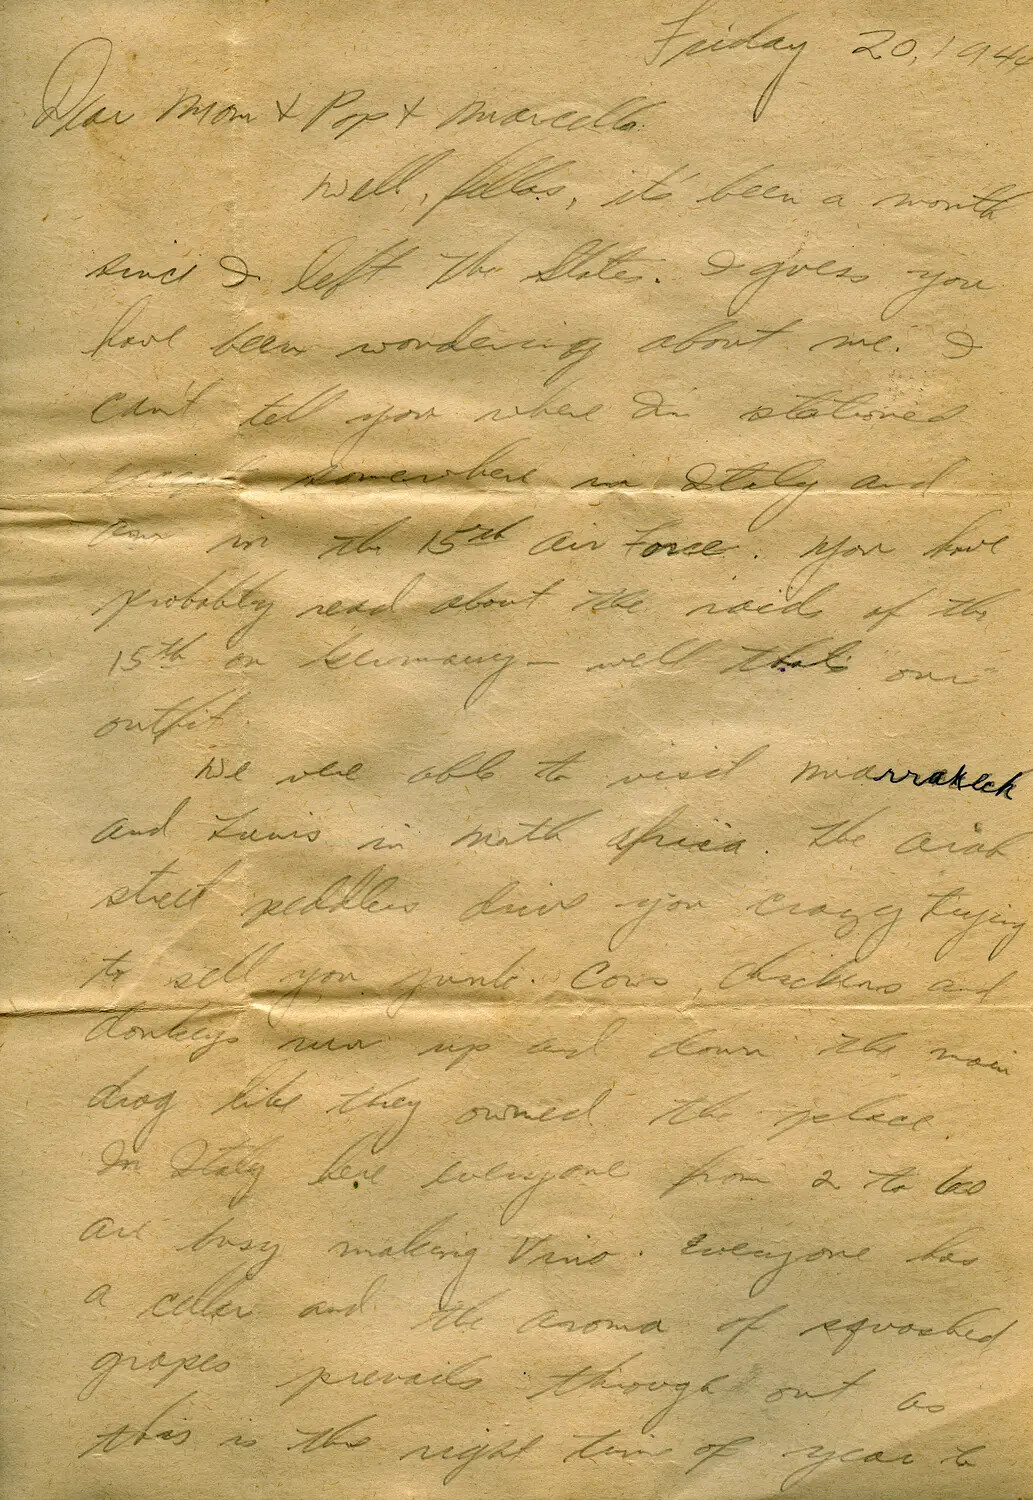 Friday 20, 1944
Dear Mom + Pop + Marcella
Well, fellas, it's been a month
since I left the States. I guess you
have been wondering about me. I
can't tell you where I'm stationed
except somewhere in Italy and
am in the 15th Air Force. You have
probably read about the raids of the
15th on Germany — well that's our
outfit.
We were able to visit Marrakech
and Tunis in North Africa. The Arab
street peddlers drive you crazy trying
to sell you junk. Cows, chickens and
donkeys run up and down the main
drag like they owned the place.
In Italy here everyone from 2 to 60
are busy making Vino. Everyone has
a cellar and the aroma of squashed
grapes prevails through out as
this is the right time of year to